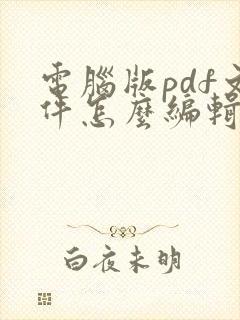 電腦版pdf文
件怎麼編輯
白夜未明